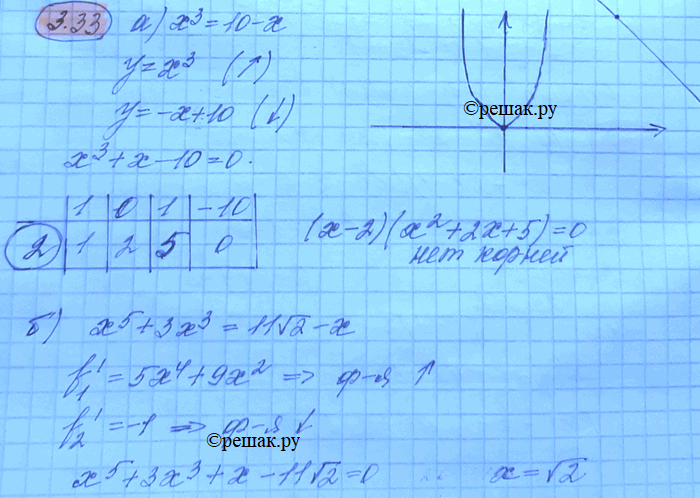 3.33 а) x³ = 10 - x
y = x³ (↑)
©решак.ру
y = -x + 10 (↓)
x³ + x - 10 = 0.
1 0 1 -10
2 1 2 5 0
(x-2)(x² + 2x + 5) = 0
нет корней
б) x⁵ + 3x³ = 11√2 - x
f₁' = 5x⁴ + 9x² => ф-я ↑
f₂' = -1 => ф-я ↓
©решак.ру
x⁵ + 3x³ + x - 11√2 = 0 .. x = √2